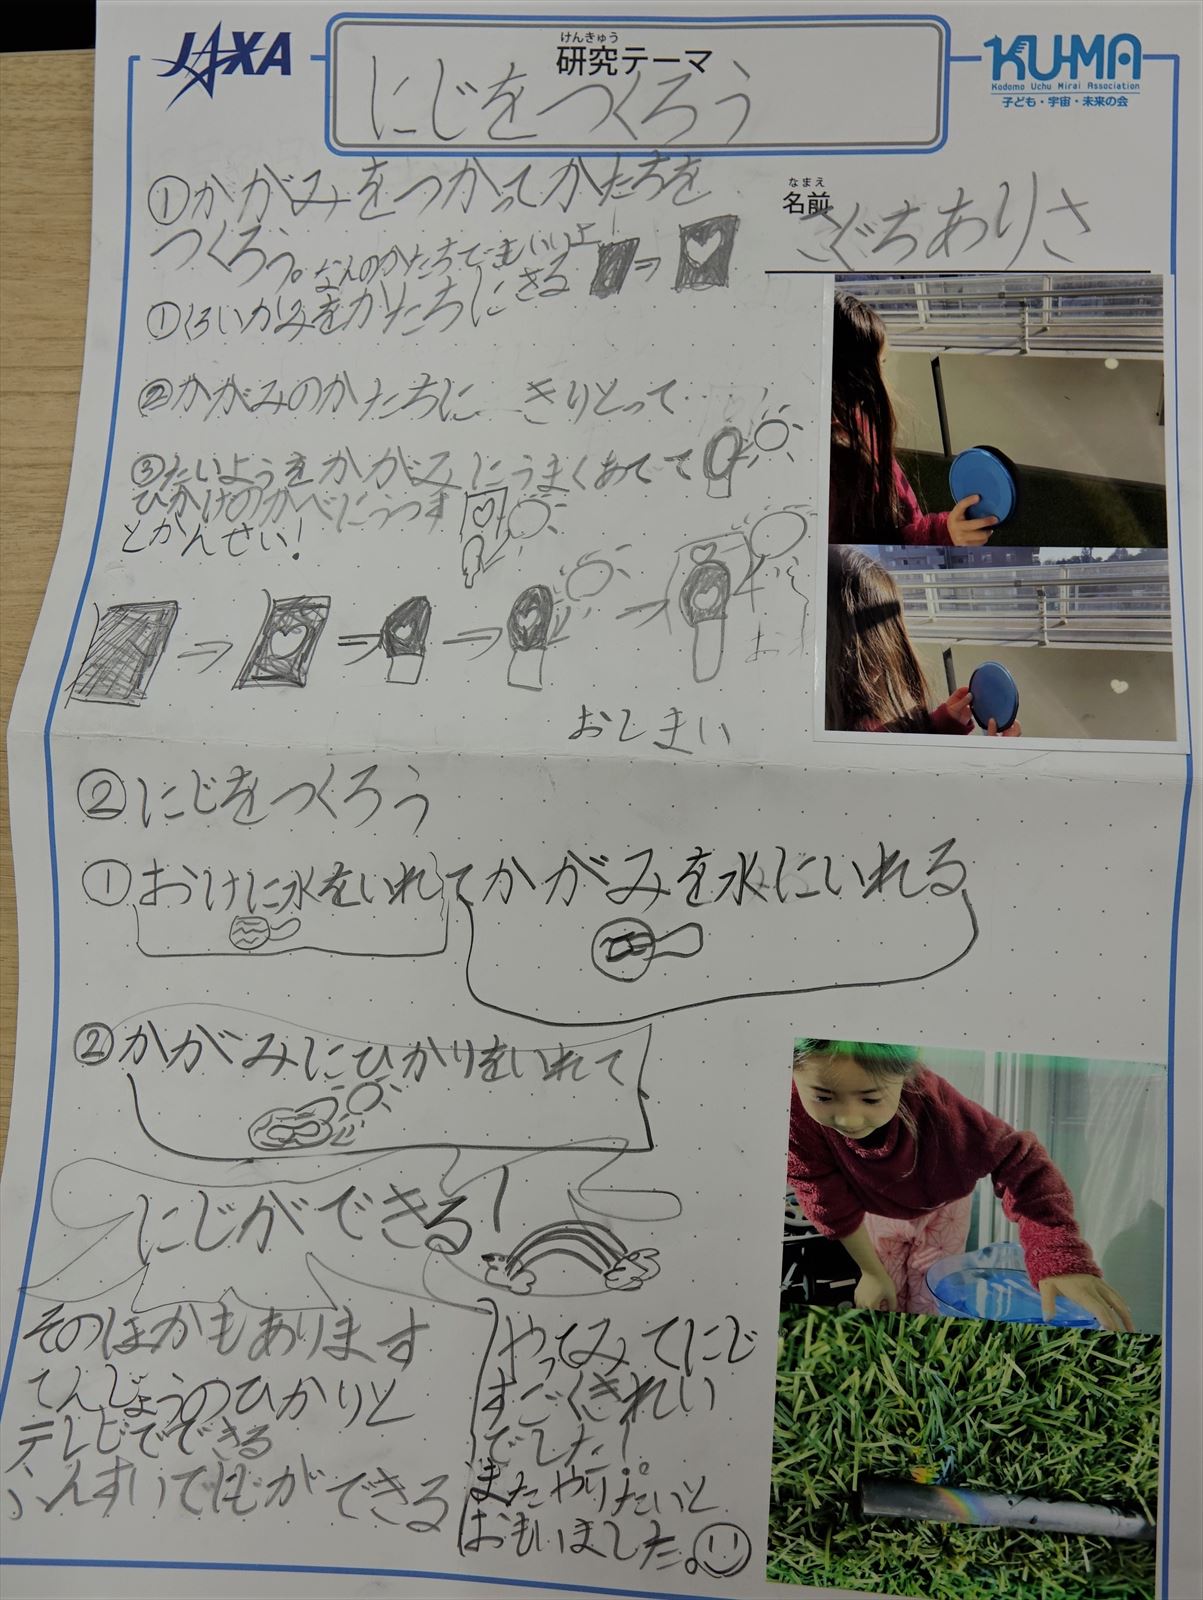 JAXA
けんきゅう
研究テーマ
にじをつくろう
KU-MA
Kodomo Uchu Mirai Association
子ども・宇宙・未来の会
なまえ
名前
さぐちありさ
①かがみをつかってかたちを
つくろう。なんのかたちでもいいよ
①くろいかみをかたちにきる
②かがみのかたちに きりとって…
③たいようをかがみにうまくあてて
ひかげのかべにうつす
とかんせい!
おしまい
②にじをつくろう
①おけに水をいれてかがみを水にいれる
②かがみにひかりをいれて
にじができる!
そのほかもあります
てんじょうのひかりと
テレビでできる
ふんすいでにじができる
やってみてにじ
すごくきれい
でした!
またやりたいと
おもいました。